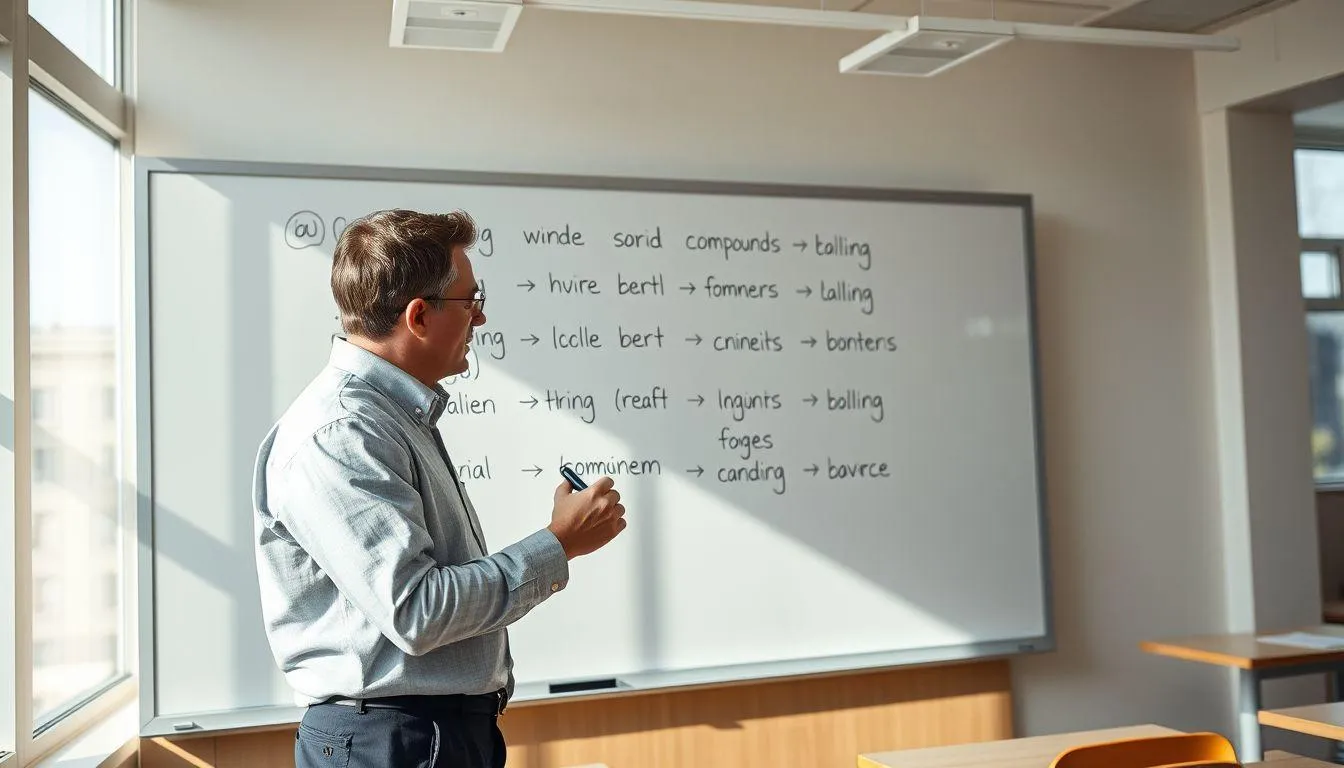 winde sorid compounds → talling
→ hvire bertl → fomners → lalling
ing → lcclle bert → cnineits → bontens
alien → thring (reaft → lngunts → bolling
foges
rial → komminem → canding → bovrce